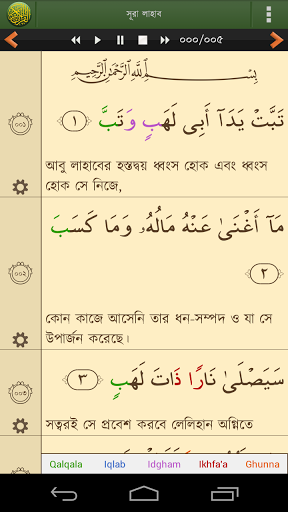 সূরা লাহাব
০০০/০০৫
بِسْمِ اللَّهِ الرَّحْمَٰنِ الرَّحِيمِ
০০১
تَبَّتْ يَدَآ أَبِى لَهَبٍ وَتَبَّ ﴿١﴾
আবু লাহাবের হস্তদ্বয় ধ্বংস হোক এবং ধ্বংস
হোক সে নিজে,
০০২
مَآ أَغْنَىٰ عَنْهُ مَالُهُۥ وَمَا كَسَبَ
﴿٢﴾
কোন কাজে আসেনি তার ধন-সম্পদ ও যা সে
উপার্জন করেছে।
০০৩
سَيَصْلَىٰ نَارًا ذَاتَ لَهَبٍ ﴿٣﴾
সত্বরই সে প্রবেশ করবে লেলিহান অগ্নিতে
Qalqala Iqlab Idgham Ikhfa'a Ghunna